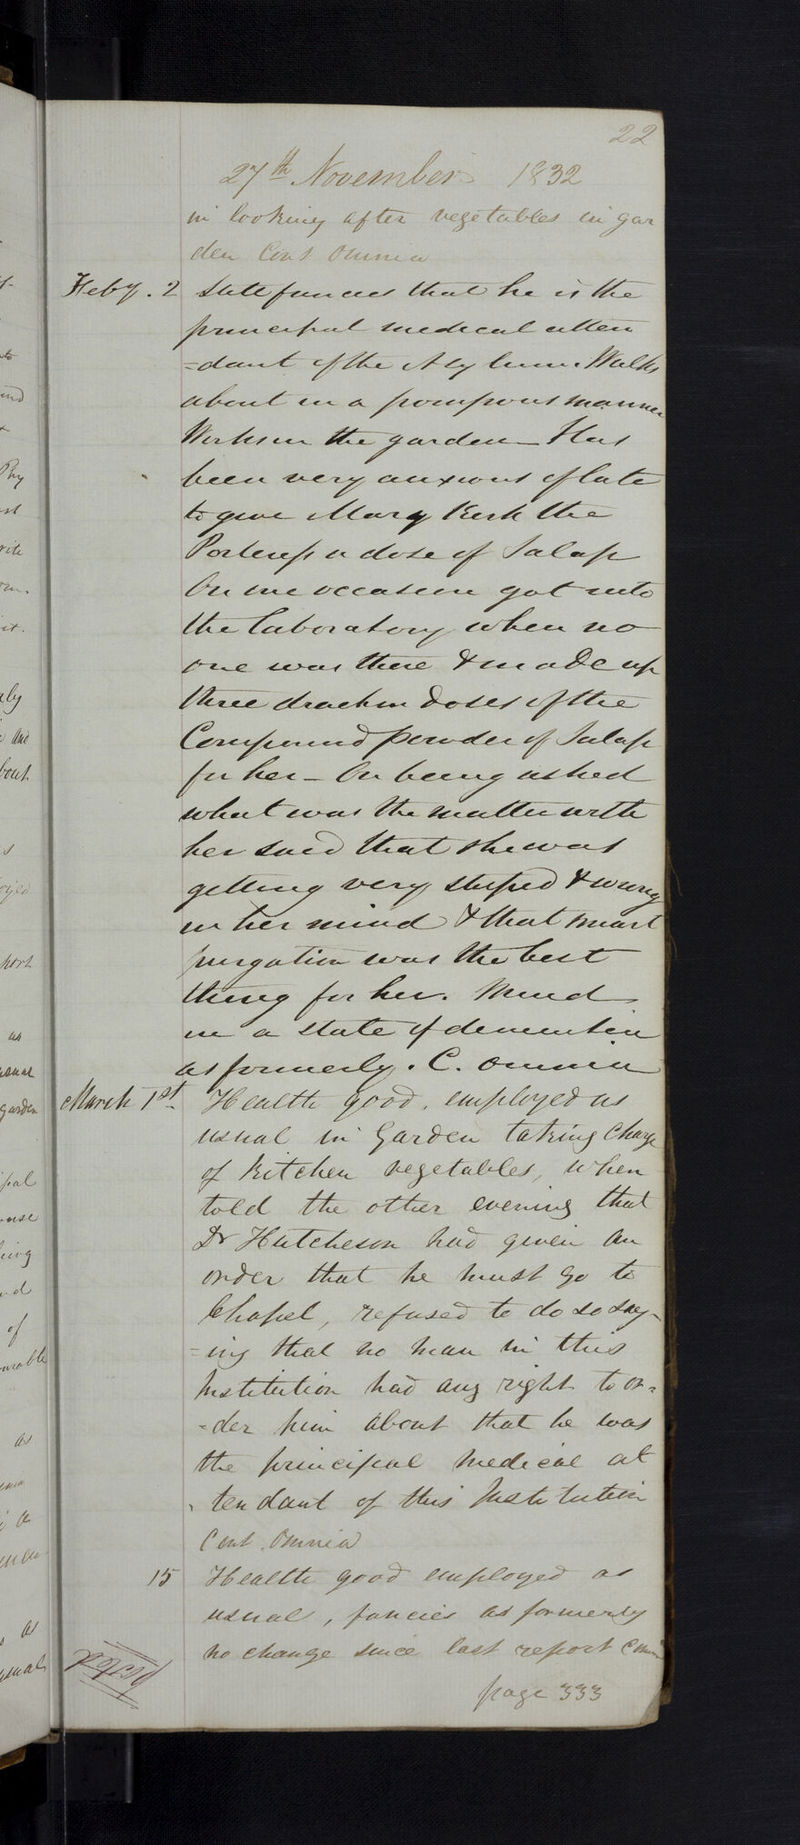 22
27th November 1832
in looking after vegetables in gar
den Cont Omnia
Feby. 2 Still fancies that he is the
principal medical atten
=dant of the Asylum. Walks
about in a pompous manner
Works in the garden - Has
been very anxious of late
to give Mary Kirk the
Porteress a dose of Jalap
On one occasion got into
the laboratory when no
one was there & made up
three drachm doses of the
Compound powder of Jalap
for her - On being asked
what was the matter with
her said that she was
getting very stupid & wrong
in her mind & that smart
purgation was the best
thing for her. Mind
in a state of dementia
as formerly. C. Omnia
March 1st. Health good, employed as
usual in Garden taking charge
of Kitchen vegetables, when
told the other evening that
Dr Hutcheson had given an
order that he must go to
Chapel, refused to do so say-
=ing that no man in this
Institution had any right to or=
=der him about that he was
the principal medical at
tendant of this Institution
Cont. Omnia
15 Health good employed as
usual, fancies as formerly
no change since last report C Omnia
page 333